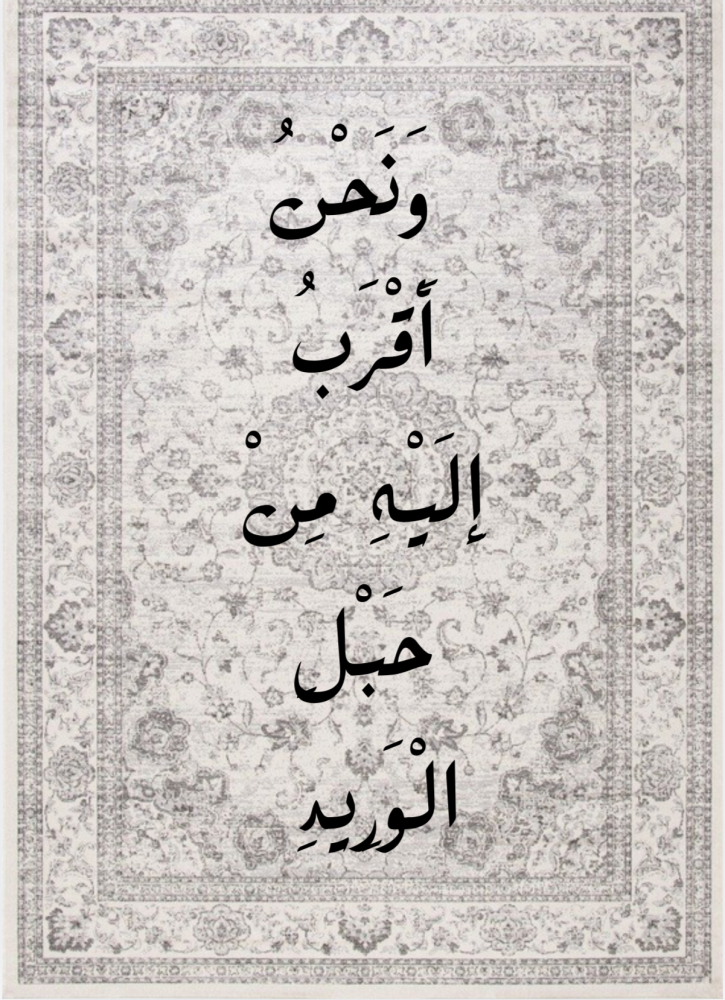 وَنَحْنُ
أَقْرَبُ
إِلَيْهِ مِنْ
حَبْل
الْوَرِيدِ